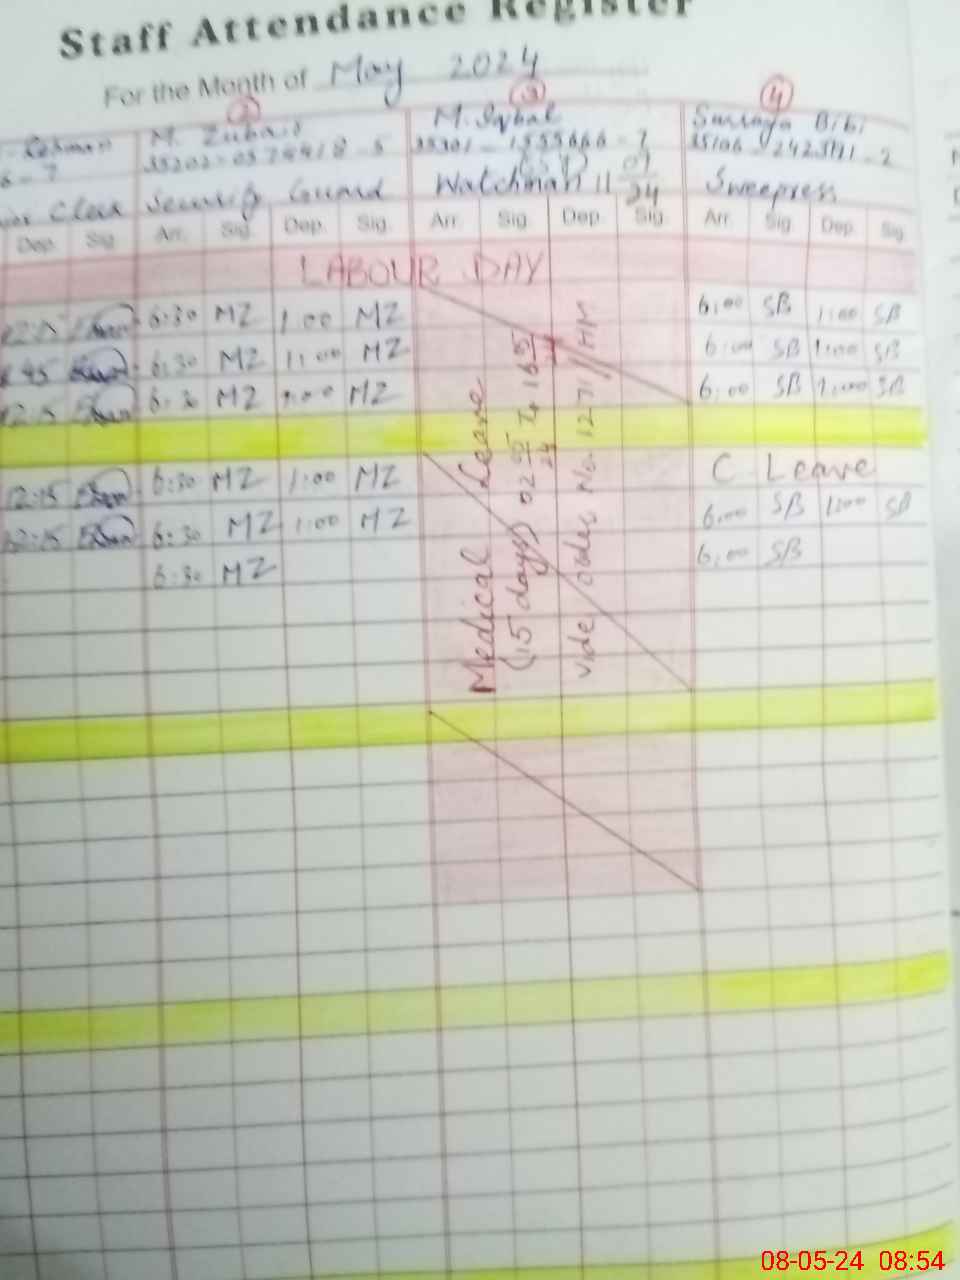 Staff Attendance Register
For the Month of May 2024
2 3 4
Rehman M. Zubair M. Iqbal Surraya Bibi
6-7
Security Guard Watchman Sweepress
Dep. Sig. Arr. Sig. Dep. Sig. Arr. Sig. Dep. Sig. Arr. Sig. Dep. Sig.
LABOUR DAY
6:30 MZ 1:00 MZ 6:00 SB 1:00 SB
6:30 MZ 1:00 MZ 6:00 SB 1:00 SB
12:15 6:30 MZ 1:00 MZ 6:00 SB 1:00 SB
12:15 6:30 MZ 1:00 MZ C. Leave
12:15 6:30 MZ 1:00 MZ 6:00 SB 1:00 SB
6:30 MZ 6:00 SB
Medical Leave
(15 days) 02 05/24 To 16 5
vide order No. 1271/HM
08-05-24 08:54